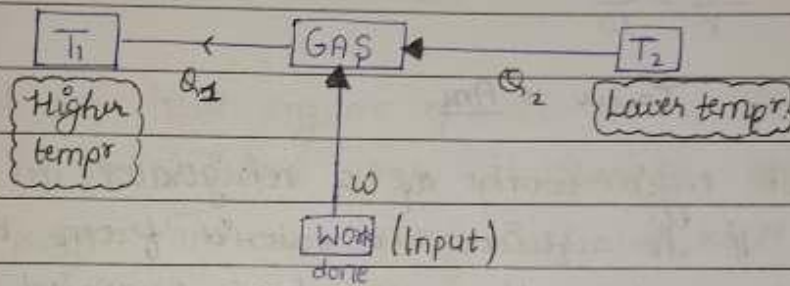 T₁ GAS T₂
Q1 Q₂
Higher tempr
Lower tempr.
W
Work done (Input)